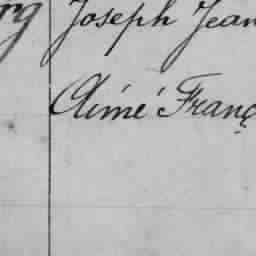 rg Joseph Jean
Aimé Franç